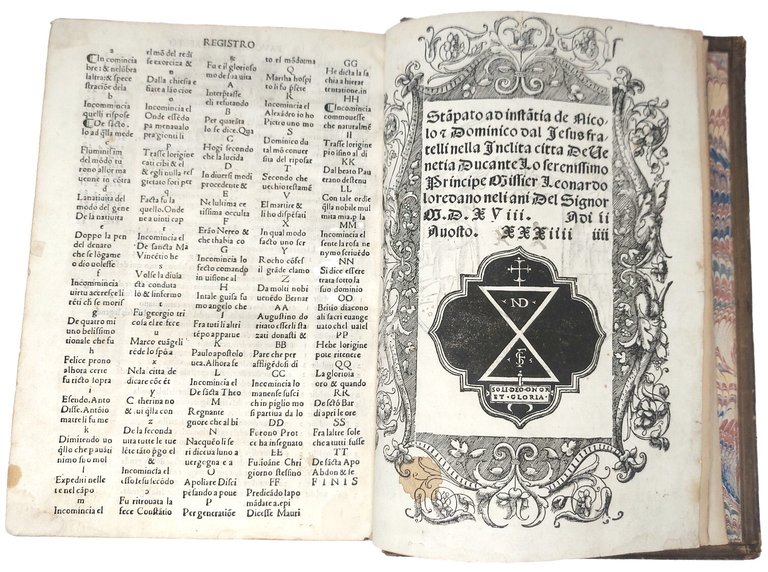 REGISTRO
a
❡In comincia
bre: & nelūbra
laltra: & spece
b
Incommincia
quelli rispose
❡De sācto.
lo ad q̄lla mede
c
del mōdo tu
reno allor ma
uenne nō cōtra
d
modo del gene
De la natiuita
e
Doppo la pen
del denaro
che se lōgame
o dio volesse
f
Incominicia
g
De quatro mi
uno belissimo
tionale che fu
h
Felice prono
allhora certe
fu ricto sopra
i
Esendo. Anto
Disse. Antōio
matreli fu me
k
Dimitendo uo
q̄llo che pauāti
nimo suo mol
l
Expediti nelle
te nel cāpo
m
Incomincia el
el mō del redi
se exorciza &
n
Dalla chiesa e
fiate a lāo cioe
o
Incomincia el
Onde essēdo
pa menaualo
pragionli li
p
Trasse lorigine
cati cibi & el
& egli nulla res
gietato fori per
q
Facta fu la
quello. Onde
ne a uinti cap
r
Incomincia el
De sancta Ma
Vincētio he
s
Volse la diuia
cta conduta
lo & linfermo
t
Fu georgio tri
cola el refece
u
Marco euāgeli
rede lo spō a
x
Nela citta de
dicare cōe et
y
Catherina no
& ui q̄lla con
z
De la seconda
uita tutte le tue
&
Incomincia el
Fu ritrouata la
fece Constātio
&
Fu e il glorioso
mo de sua uita
A
Interpresse
eli refutando
B
Per questa
lo se dice. Qua
C
Hogi secondo
che la lurida
D
In diuersi modi
procedente &
E
Nel ultima ce
tissima occulta
F
Erāo Nereo &
che thabia co
G
Incomincia lo
secto comando
in uisione al
H
Intale guisa fu
mo angelo che
I
Fra tuti li altri
tēpo apparue
K
Paulo apostolo
uca. Alhora se
L
Incomincia el
De sācta Theo
M
Regnante
gnore che al bi
N
Nacqueō li se
ri dicitua luno a
uergogna e a
O
Apoliare Disci
pelando a poue
P
Per generatiōe
to el mōdo ma
Q
Martha hospi
to li fo psete
R
Incomincia el
Alexādro io ho
Pietro uno mo
S
Dominico da
tal mō conuer
siua del riposat
T
Secondo che
uechio testamē
V
El martire &
li ho dispēsati
X
In qual modo
facto uno ser
Y
Rocho cōfesf
il grāde clamo
Z
Da molti nobi
uenuto Bernar
AA
Augustino do
ri tato esceli stan
zati donasti &
BB
Pare che per
CC
Incomincia lo
manense susci
chi in piglio mo
si partiua da lo
DD
Furono Prote
cha insegnato
EE
Fu. ioāne Chri
giorno stessino
FF
Predicādo la po
mādate a. epi
Dicesse Mauri
GG
He dicta la sa
chia a hierar
tentatione. in
HH
❡Incomincia
commouesse
che naturalmē
II
Trasse lorigine
pio isino al di
KK
Dal beato Pau
terano desten
LL
Con tale ordie
q̄lla nobile mul
mita ma. p la
MM
Incomincia el
sente la rosa ne
nymo scriuēdo
NN
Si dice essere
trata sotto la
suo dominio
OO
Britio diacono
ali sacri euange
uato che l ualel
PP
Hebe lorigine
pote ritenere
QQ
La glorioia
oro & quando
RR
De sctō Bar
di apri le ore
SS
Fra laltre sole
che a tutti fusse
TT
De sācta Apo
Abdon & se
FINIS
Stāpato ad instātia de Nico
lo ⁊ Dominico dal Jesus fra
telli nella Inclita citta De Ve
netia Ducante Lo serenissimo
Principe Missier Leonardo
loredano neli ani Del Signor
M. D. XVIII. Adi ii
Auosto. XXXIIII iiii
ND
SF
SOLI·DEO·ONOR
ET·GLORIA·